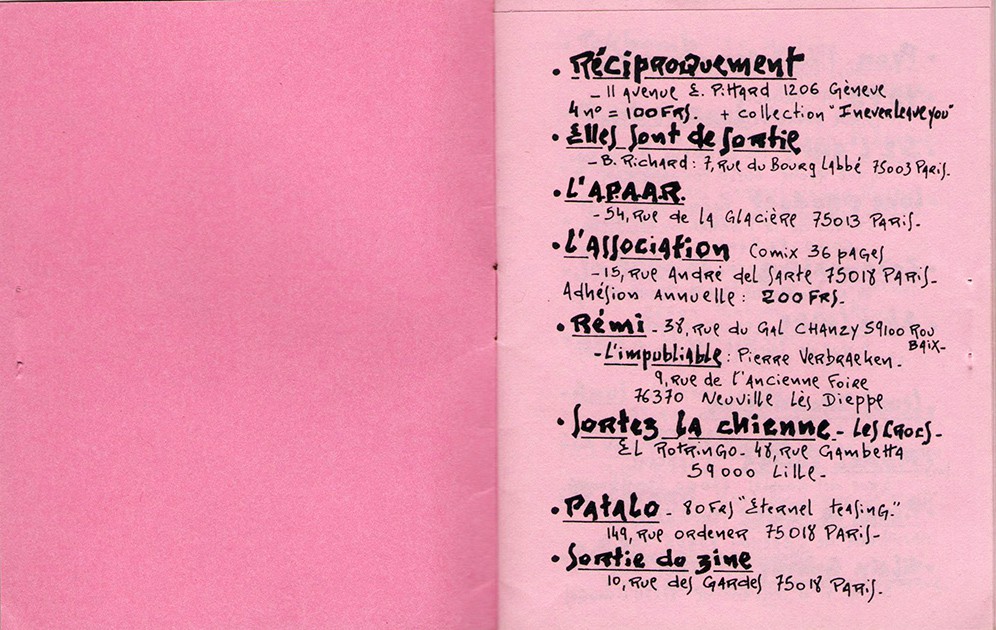 • Réciproquement
- 11 avenue E. Pittard 1206 Gèneve
4 n° = 100 FRS. + collection "I never leave you"
• Elles sont de sortie
- B. Richard : 7, rue du Bourg Labbé 75003 Paris.
• L'A.P.A.A.R.
- 54, rue de la Glacière 75013 Paris -
• L'Association Comix 36 pages
- 15, rue André del Sarte 75018 Paris -
Adhésion annuelle : 200 FRS -
• Rémi - 38, rue du Gal Chanzy 59100 Rou
baix -
- L'impubliable : Pierre Verbraeken -
9, rue de l'Ancienne Foire
76370 Neuville lès Dieppe
• Sortez la chienne - Les Crocs -
El Rotringo - 48, rue Gambetta
59000 Lille -
• Patalo - 80 FRS "Eternel teasing."
149, rue ordener 75018 Paris -
• Sortie de zine
10, rue des Gardes 75018 Paris.